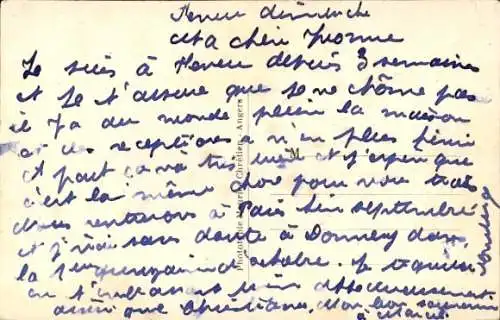 dimanche
ma chère Yvonne
Je suis à depuis 3 semaines
et je t'assure que je ne chôme pas
il y a du monde plein la maison
et des réceptions à n'en plus finir
à part ça va très et j'espère que
c'est la même chose pour vous tous
Nous rentrons à Paris fin septembre
et j'irai sans doute à Donnery dans
la 1 quinzaine d'octobre. Je
en t'embrassant bien affectueusement
ainsi que Christiane. Mon bon souvenir
à
Phototypie Chrétien, Angers